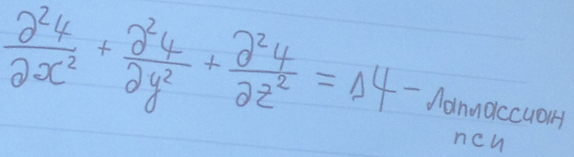 ∂²ψ/∂x² + ∂²ψ/∂y² + ∂²ψ/∂z² = Δψ - лаплассиан
пси